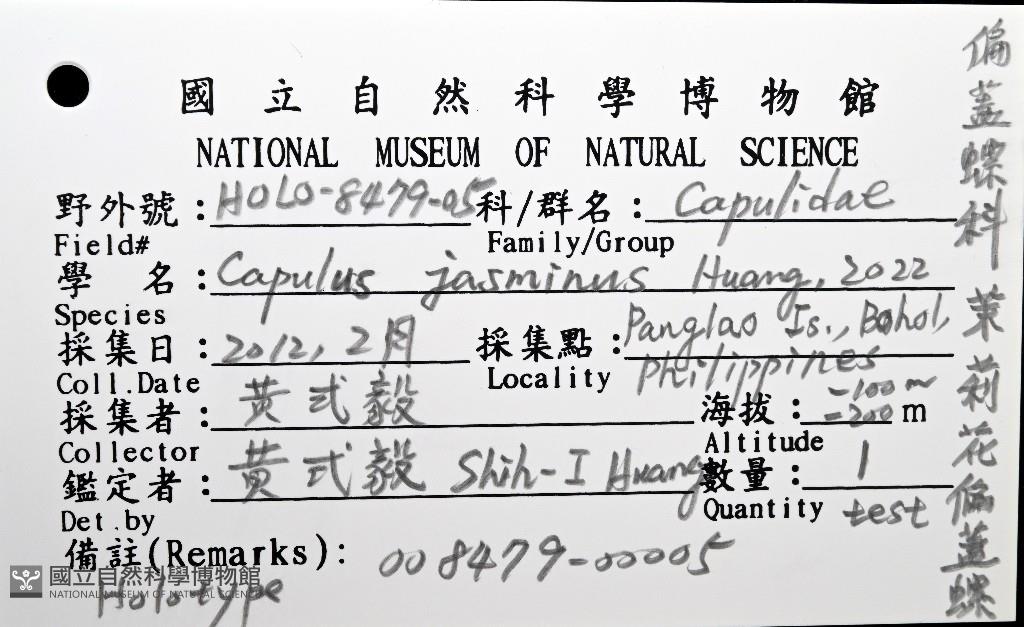 國立自然科學博物館
NATIONAL MUSEUM OF NATURAL SCIENCE
野外號：HOLO-8479-05 科/群名：Capulidae
Field# Family/Group
學 名：Capulus jasminus Huang, 2022
Species
採集日：2012, 2月 採集點：Panglao Is., Bohol, Philippines
Coll.Date Locality
採集者：黃式毅 海拔：-100m -200 m
Collector Altitude
鑑定者：黃式毅 Shih-I Huang 數量：1
Det.by Quantity test
備註(Remarks)：008479-00005
Holotype
偏蓋螺科 茉莉花偏蓋螺
國立自然科學博物館
NATIONAL MUSEUM OF NATURAL SCIENCE